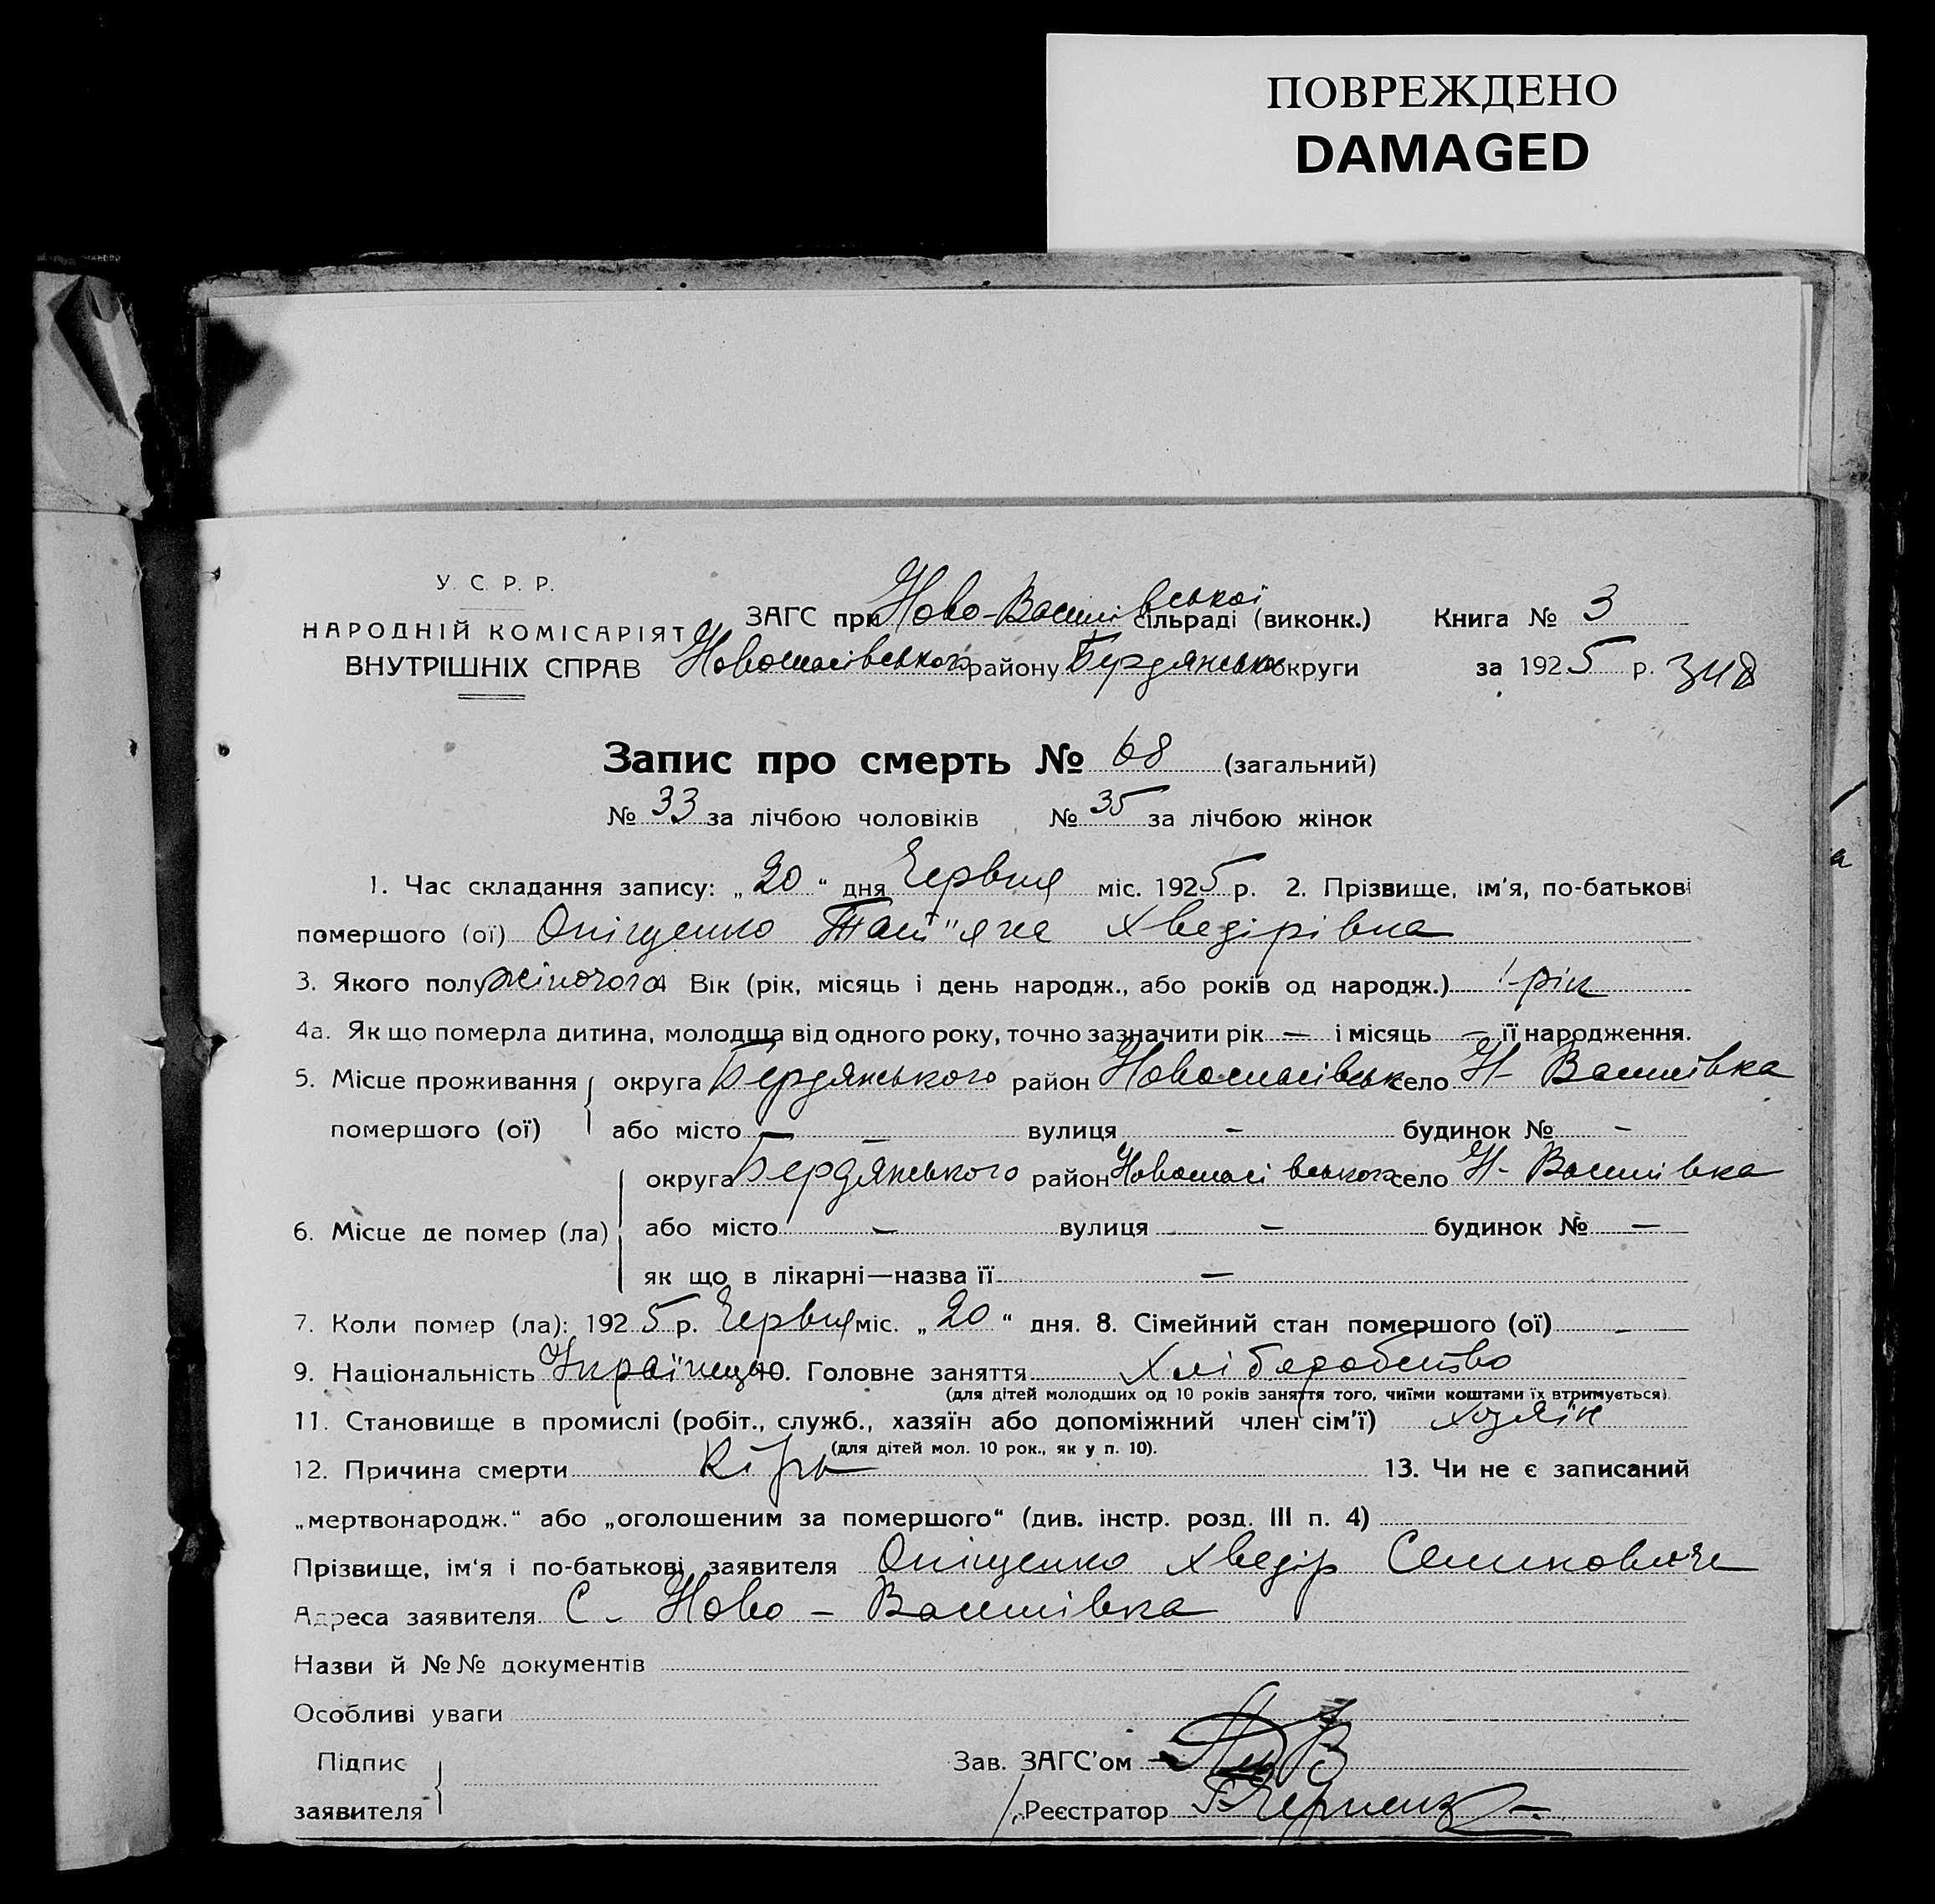 ПОВРЕЖДЕНО
DAMAGED
У. С. Р. Р.
НАРОДНІЙ КОМІСАРІЯТ
ВНУТРІШНІХ СПРАВ
ЗАГС при Ново-Василівської сільраді (виконк.)
Новоспасівського району Бердянськ округи
Книга № 3
за 1925 р. 348
Запис про смерть № 68 (загальний)
№ 33 за лічбою чоловіків № 35 за лічбою жінок
1. Час складання запису: „20“ дня Червня міс. 1925 р. 2. Прізвище, ім'я, по-батькові
помершого (ої) Оніщенко Тат"яна Хведірівна
3. Якого полу жіночого 4 Вік (рік, місяць і день народж., або років од народж.) 1 рік
4а. Як що померла дитина, молодща від одного року, точно зазначити рік — і місяць — її народження.
5. Місце проживання округа Бердянського район Новоспасівськ село Н- Василівка
помершого (ої) або місто — — вулиця - будинок № -
округа Бердянського район Новоспасівського село Н- Василівка
6. Місце де помер (ла) або місто — вулиця — будинок № —
як що в лікарні—назва її —
7. Коли помер (ла): 1925 р. Червня міс. „20“ дня. 8. Сімейний стан помершого (ої) -
9. Національність Українець 10. Головне заняття Хліборобство
(для дітей молодших од 10 років заняття того, чиїми коштами їх втримується)
11. Становище в промислі (робіт., служб., хазяїн або допоміжний член сім'ї) хозяїн
(для дітей мол. 10 рок., як у п. 10).
12. Причина смерти Кір 13. Чи не є записаний
„мертвонародж.“ або „оголошеним за помершого“ (див. інстр. розд. III п. 4)
Прізвище, ім'я і по-батькові заявителя Оніщенко Хведір
Адреса заявителя С. Ново - Василівка
Назви й №№ документів
Особливі уваги
Підпис
заявителя
Зав. ЗАГС'ом
Реєстратор